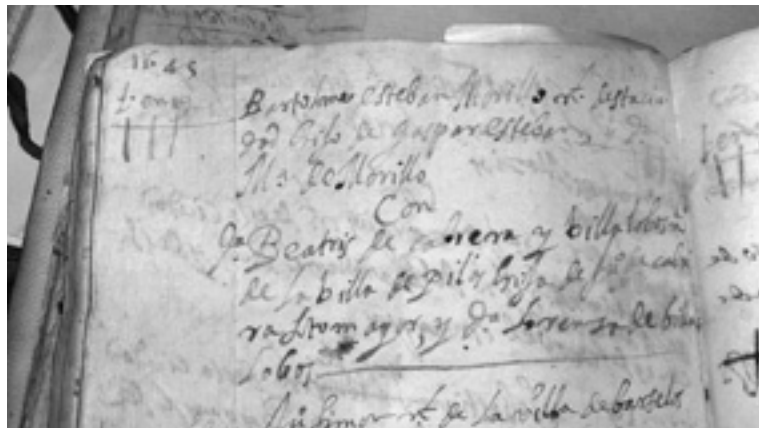 1645
Bartolome esteban Morillo nt. desta ciu
dad hijo de gaspar esteban y d.
Ma. de Morillo
Con
Da. Beatris de cabrera y billalobos na
de la billa de pilas hija de
ra sotomayor, y Da. Lorenza de billa
lobos
nt. de la villa de barselos